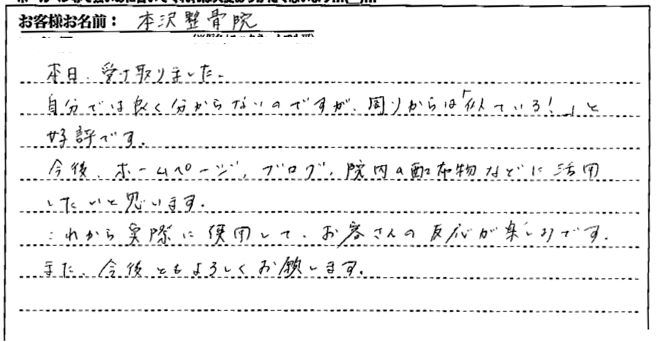 お客様お名前： 本沢整骨院
本日、受け取りました。
自分では良く分からないのですが、周りからは「似ている！」と
好評です。
今後、ホームページ、ブログ、院内の配布物などに活用
したいと思います。
これから実際に使用して、お客さんの反応が楽しみです。
また、今後ともよろしくお願します。